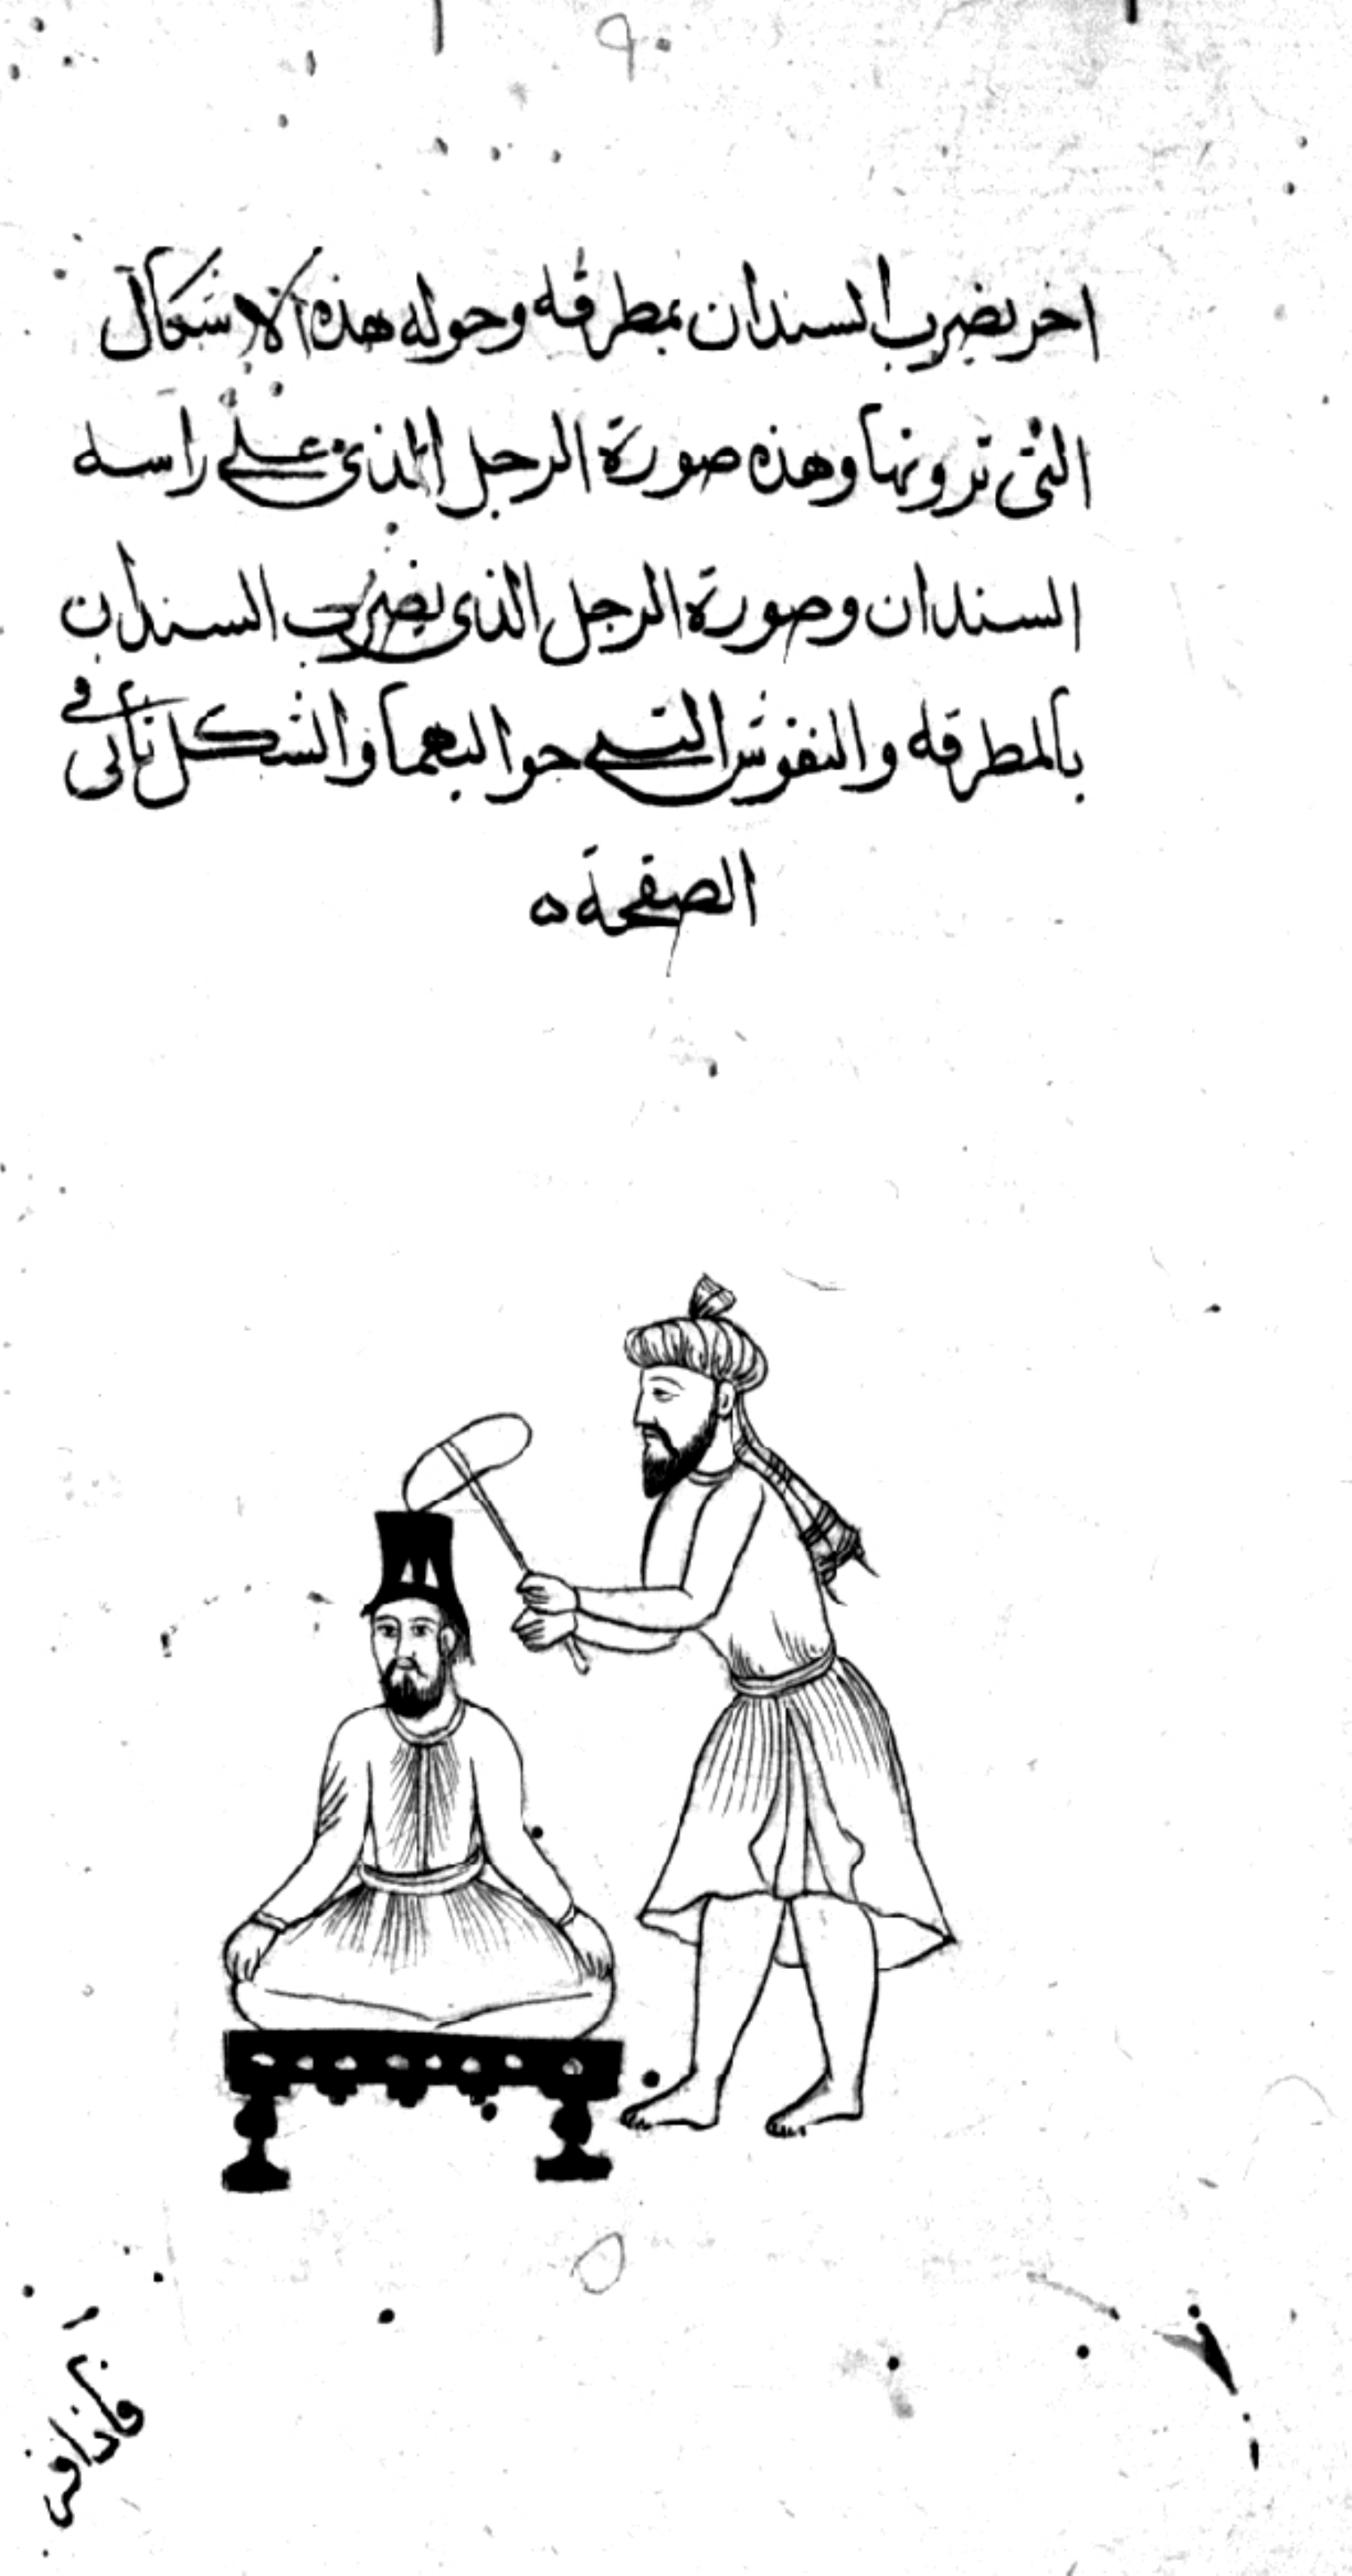 ٩٠
اخر يضرب السندان بمطرقه وحوله هذه الاشكال
التى ترونها وهذه صورة الرجل الذى على راسه
السندان وصورة الرجل الذى يضرب السندان
بالمطرقه والنقوش التى حواليهما والشكل ياتى فى
الصفحة ه